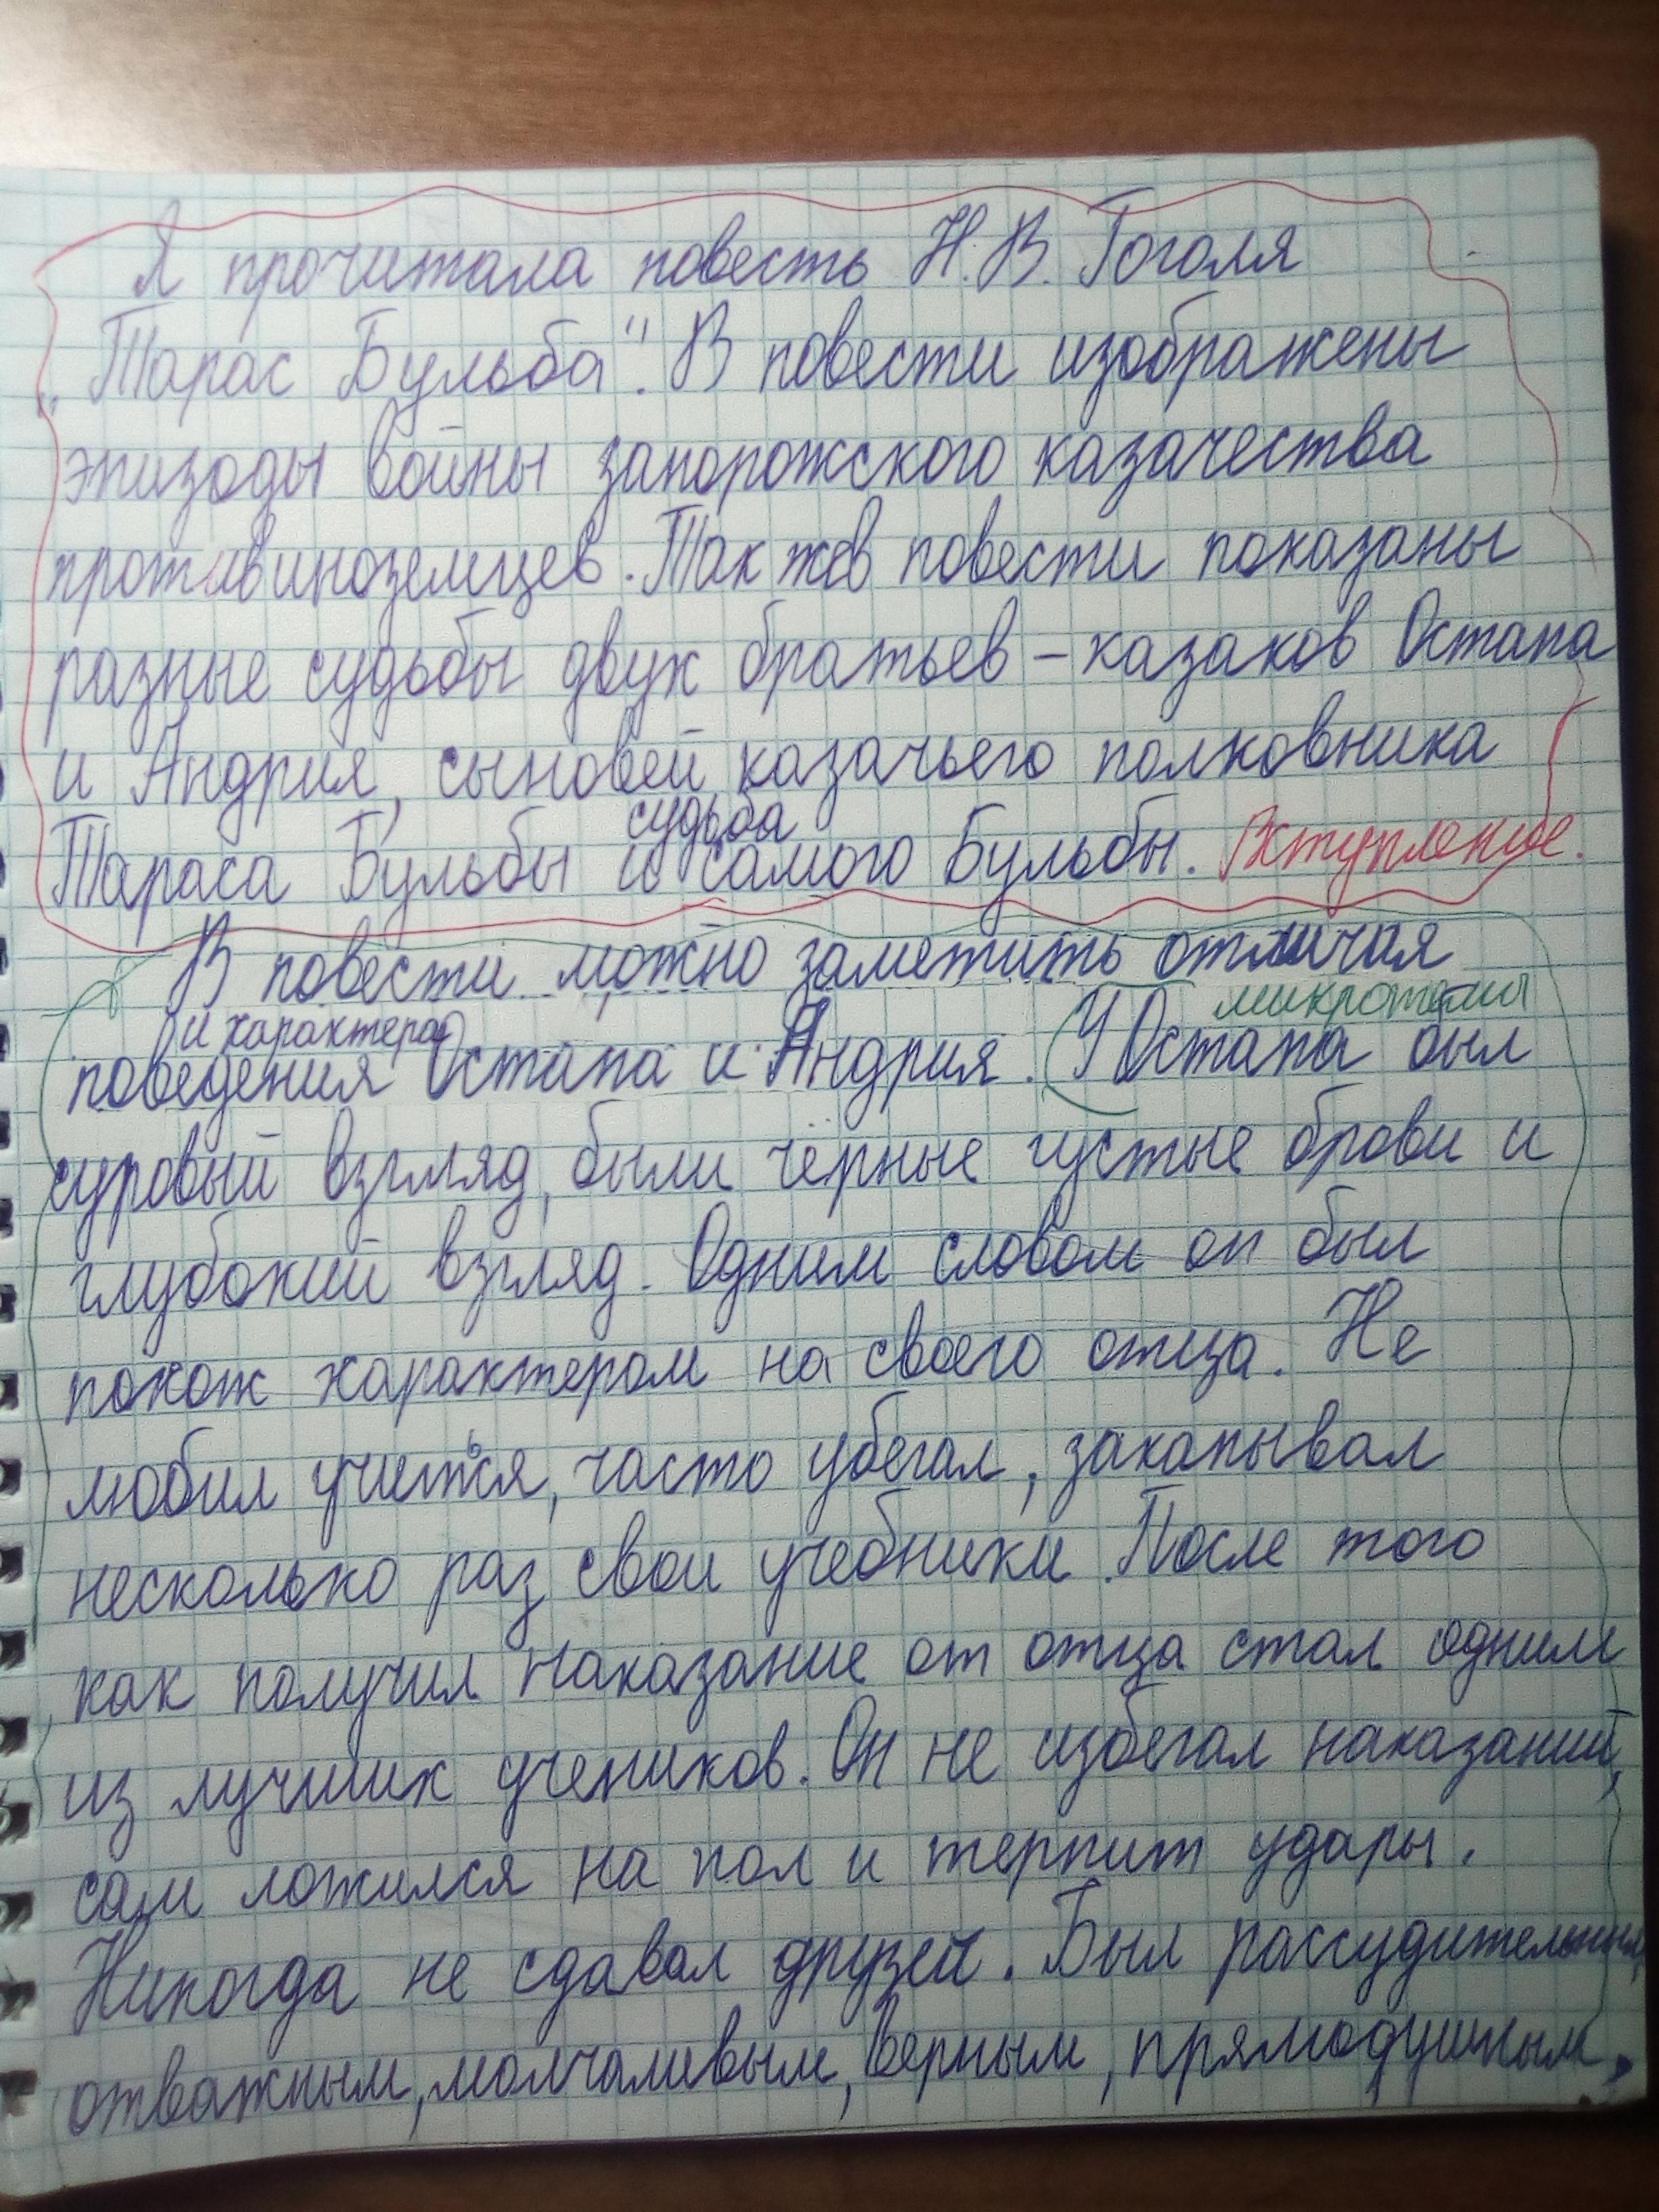 Я прочитала повесть Н.В. Гоголя
„Тарас Бульба". В повести изображены
эпизоды войны запорожского казачества
против иноземцев. Так же в повести показаны
разные судьбы двух братьев – казаков Остапа
и Андрия, сыновей казачьего полковника
судьба
Тараса Бульбы и самого Бульбы. Вступление.
В повести можно заметить отличия
микротемы
и характера
поведения Остапа и Андрия. У Остапа был
суровый взгляд, были чёрные густые брови и
глубокий взгляд. Одним словом он был
похож характером на своего отца. Не
любил учиться, часто убегал, закапывал
несколько раз свои учебники. После того
как получил наказание от отца стал одним
из лучших учеников. Он не избегал наказаний,
сам ложился на пол и терпит удары.
Никогда не сдавал друзей. Был рассудительным,
отважным, молчаливым, верным, прямодушным,